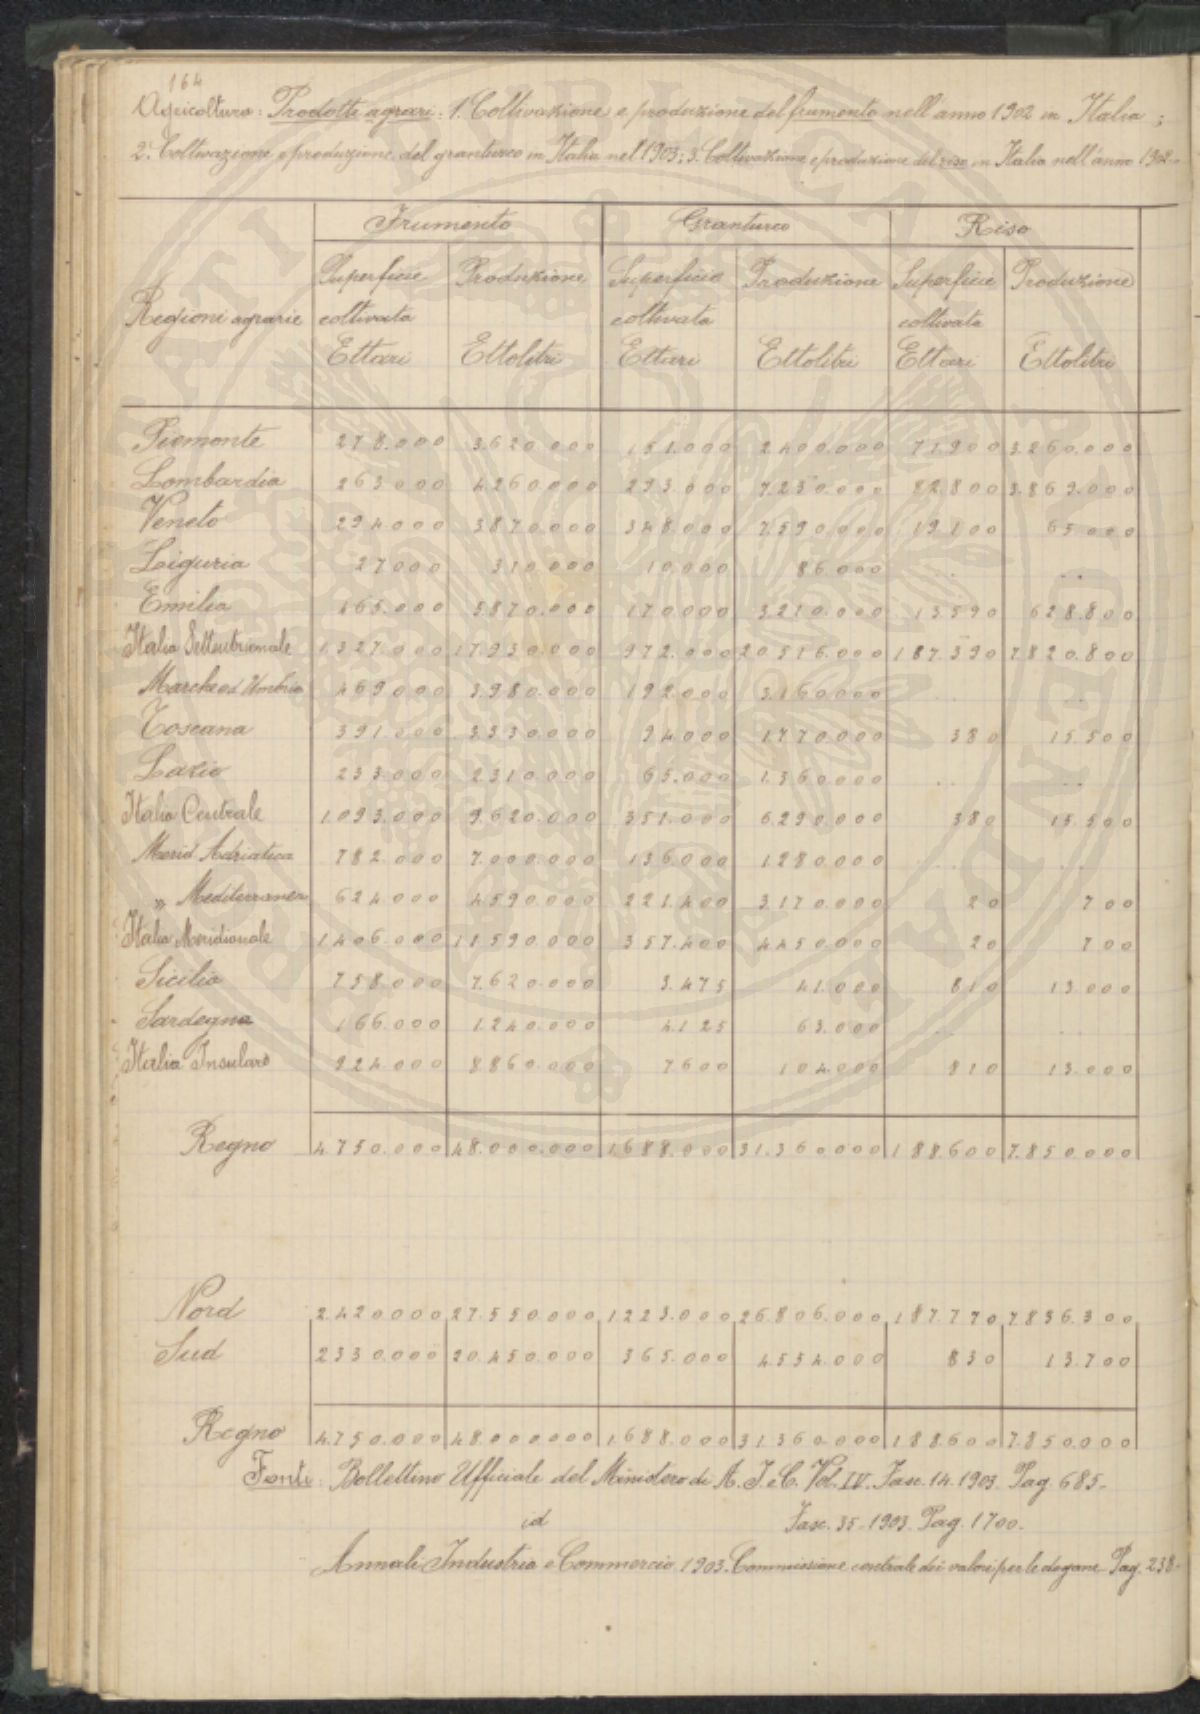 164
Agricoltura: Prodotti agrari: 1. Coltivazione e produzione del frumento nell'anno 1902 in Italia;
2. Coltivazione e produzione del granturco in Italia nel 1903; 3. Coltivazione e produzione del riso in Italia nell'anno 1902.
Frumento Granturco Riso
Superficie Produzione Superficie Produzione Superficie Produzione
Regioni agrarie coltivata coltivata coltivata
Ettari Ettolitri Ettari Ettolitri Ettari Ettolitri
Piemonte 278.000 3.620.000 151.000 2.400.000 71.900 3.260.000
Lombardia 263.000 4.260.000 293.000 7.230.000 82.800 3.869.000
Veneto 294.000 3.870.000 348.000 7.590.000 19.100 65.000
Liguria 27.000 310.000 10.000 86.000 .. ..
Emilia 465.000 5.870.000 170.000 3.210.000 13.590 628.800
Italia Settentrionale 1.327.000 17.930.000 972.000 20.516.000 187.390 7.820.800
Marche ed Umbria 469.000 3.980.000 192.000 3.160.000 .. ..
Toscana 391.000 3.330.000 94.000 1.770.000 380 15.500
Lazio 233.000 2.310.000 65.000 1.360.000 .. ..
Italia Centrale 1.093.000 9.620.000 351.000 6.290.000 380 15.500
Merid Adriatica 782.000 7.000.000 136.000 1.280.000 .. ..
" Mediterranea 624.000 4.590.000 221.400 3.170.000 20 700
Italia Meridionale 1.406.000 11.590.000 357.400 4.450.000 20 700
Sicilia 758.000 7.620.000 3.475 41.000 810 13.000
Sardegna 166.000 1.240.000 4.125 63.000 .. ..
Italia Insulare 924.000 8.860.000 7.600 104.000 810 13.000
Regno 4.750.000 48.000.000 1.688.000 31.360.000 188.600 7.850.000
Nord 2.420.000 27.550.000 1.223.000 26.806.000 187.770 7.836.300
Sud 2.330.000 20.450.000 365.000 4.554.000 830 13.700
Regno 4.750.000 48.000.000 1.688.000 31.360.000 188.600 7.850.000
Fonti: Bollettino Ufficiale del Ministero di A. I. e C. Vol. IV. Fasc. 14. 1903. Pag. 685.
id Fasc. 35. 1903. Pag. 1700.
Annali Industria e Commercio 1903. Commissione centrale dei valori per le dogane. Pag. 238.